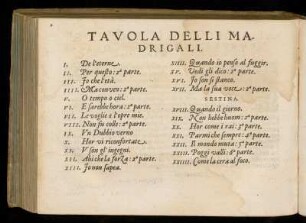 TAVOLA DELLI MA-
DRIGALI.
I. De l'eterne
II. Per questo: 2ª parte.
III. Io che l'età.
IIII. Ma 2ª parte.
V. O tempo o ciel.
VI. E sarebbe hora: 2ª parte.
VII. Le voglie e l'opre mie.
VIII. Non fu colto: 2ª parte.
IX. Vn Dubbio verno
X. Hor vi riconfortate
XI. V son gl'ingegni.
XII. Ahi che la forza: 2ª parte.
XIII. Io non sapea.
XIIII. Quando io penso al fuggir.
XV. Vedi gli dico: 2ª parte.
XVI. Io son sì stanco.
XVII. Ma la sua voce: 2ª parte.
SESTINA.
XVIII. Quando il giorno.
XIX. Non hebbe huom: 2ª parte.
XX. Hor come i rai: 3ª parte.
XXI. Parmi che sempre: 4ª parte.
XXII. Il mondo muta: 5ª parte.
XXIII. Poggi valli: 6ª parte.
XXIIII. Come la cera al foco.